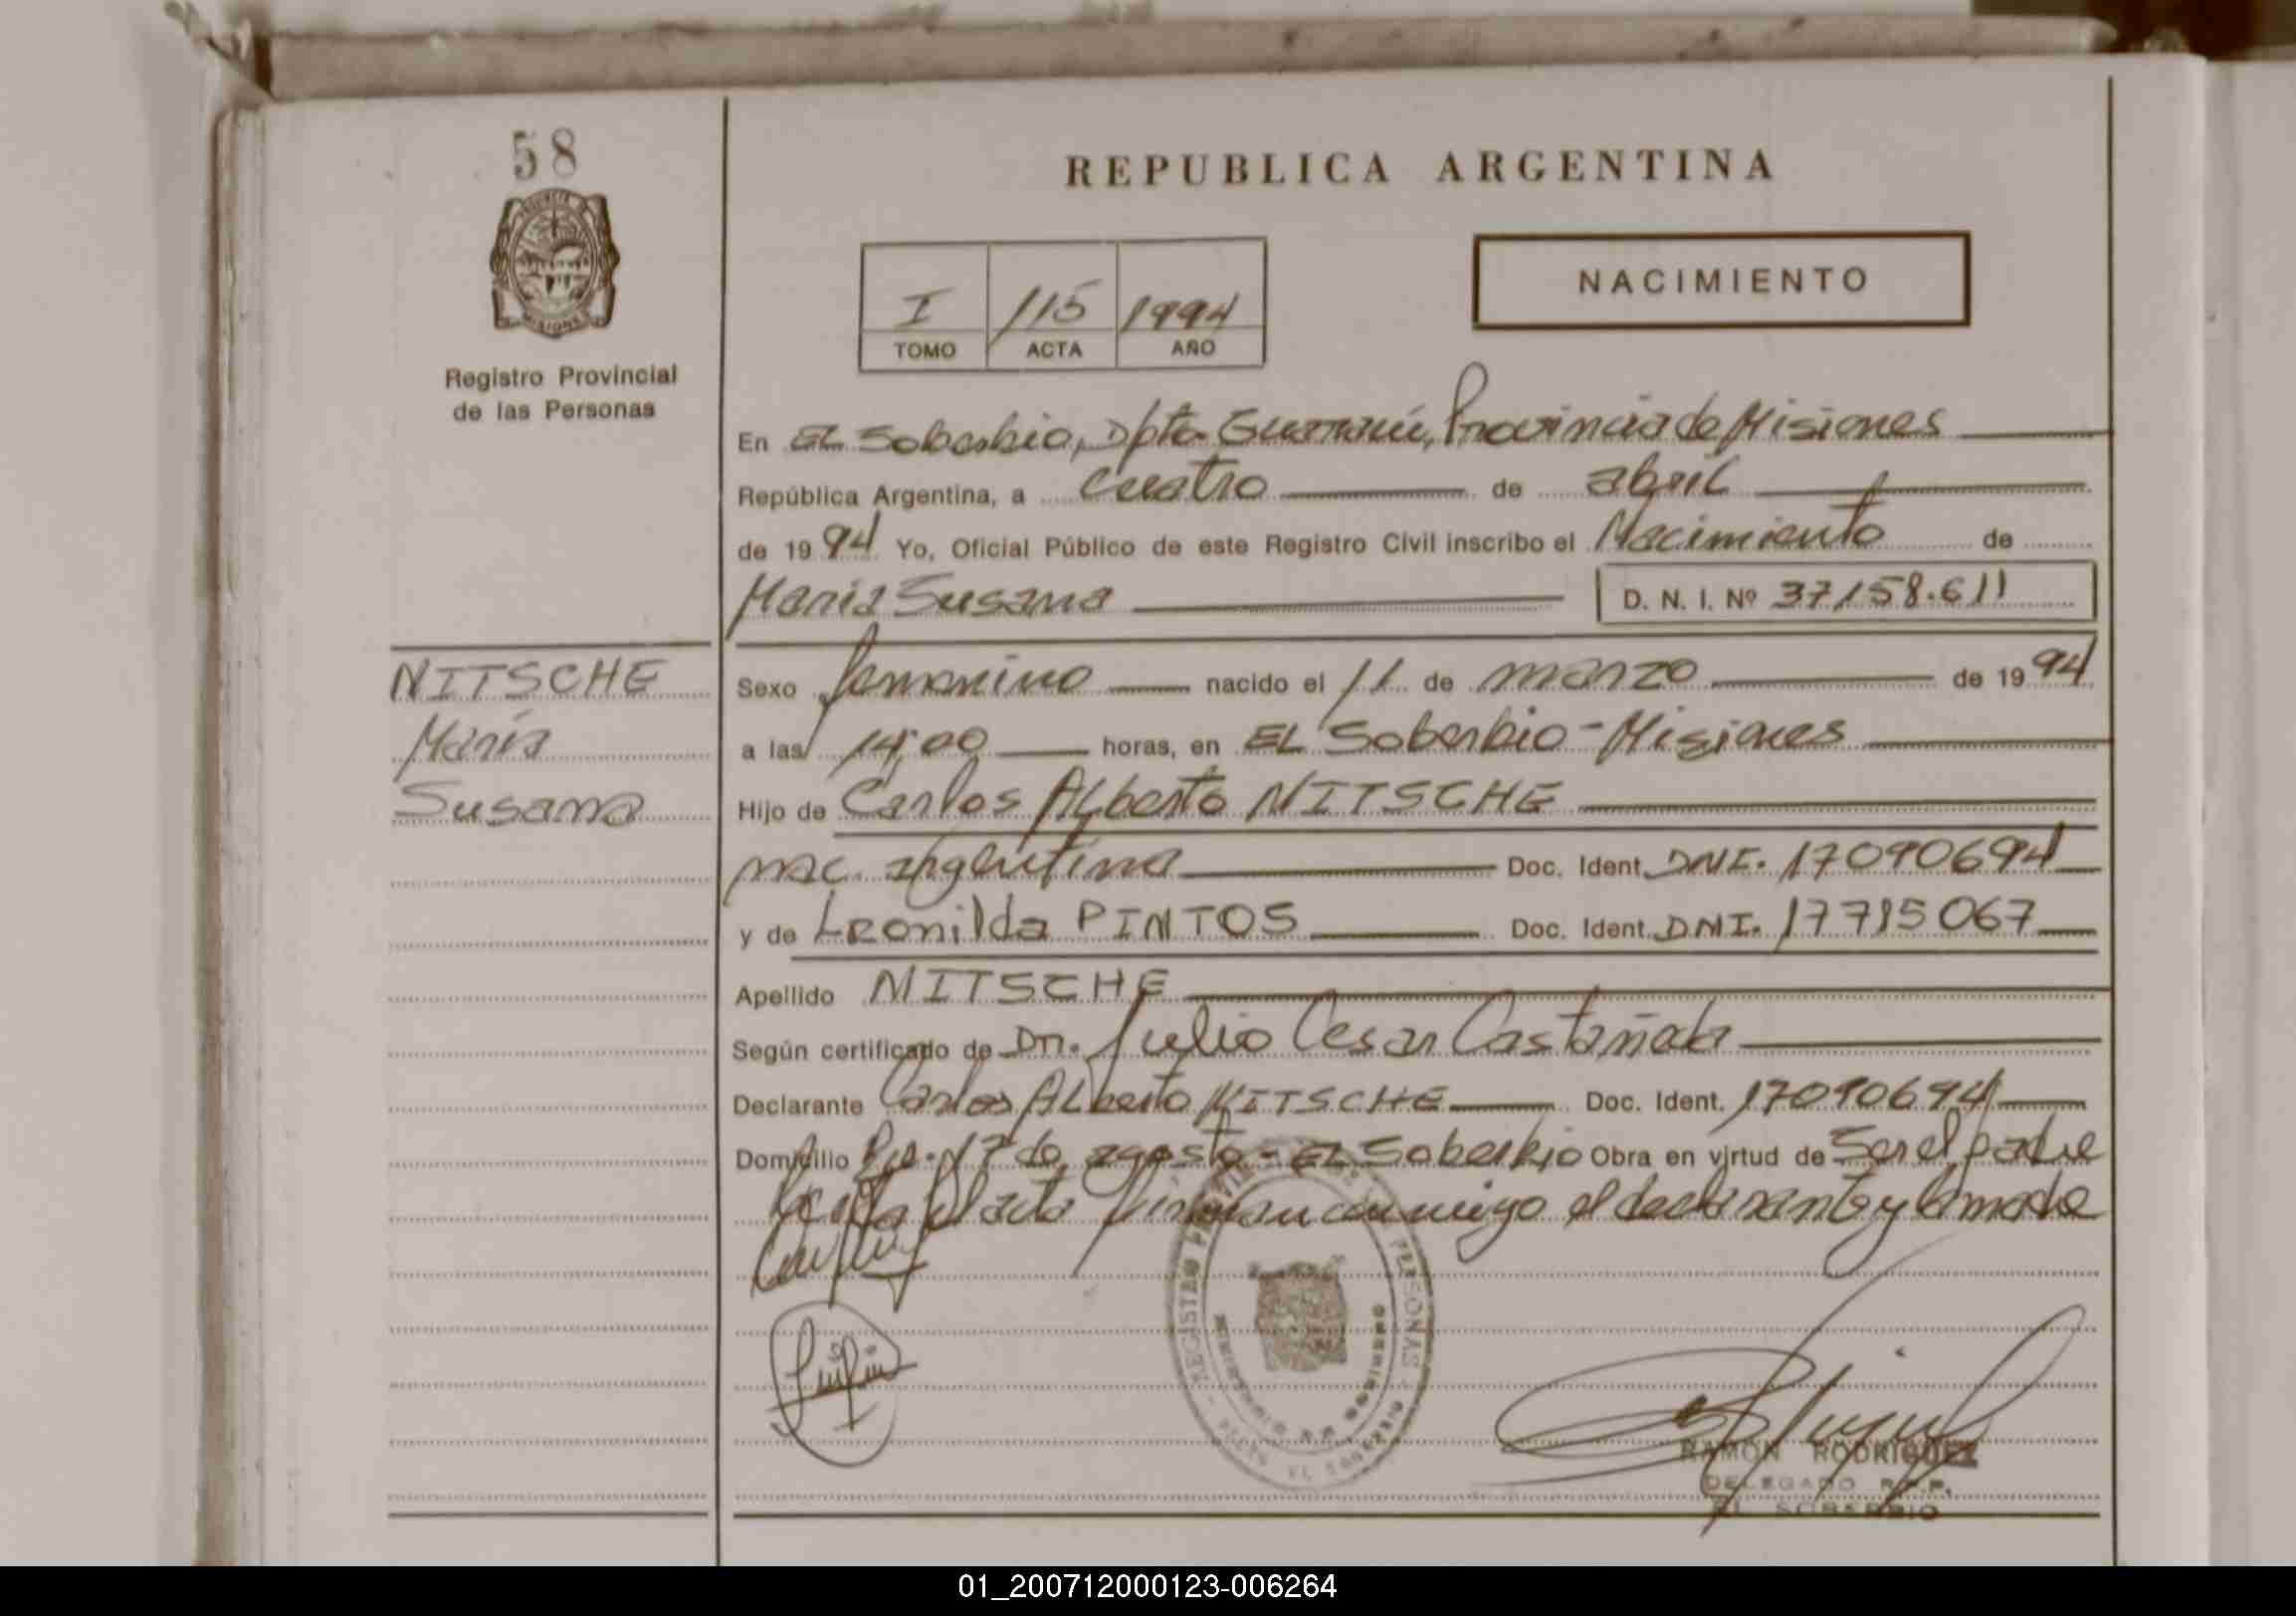 58
REPUBLICA ARGENTINA
NACIMIENTO
I 115 1994
TOMO ACTA AÑO
Registro Provincial
de las Personas
En EL Soberbio, Dpto. Guaraní, Provincia de Misiones
República Argentina, a cuatro de abril
de 1994 Yo, Oficial Público de este Registro Civil inscribo el Nacimiento de
María Susana D. N. I. Nº 37.158.611
NITSCHE
María
Susana
Sexo femenino nacido el 11 de marzo de 1994
a las 14,00 horas, en EL Soberbio - Misiones
Hijo de Carlos ALberto NITSCHE
nac. argentina Doc. Ident. DNI. 17090694
y de Leonilda PINTOS Doc. Ident. DNI. 17715067
Apellido NITSCHE
Según certificado de Dr. Julio Cesar Castañeda
Declarante Carlos ALberto NITSCHE Doc. Ident. 17090694
Domicilio 17 de agosto - EL Soberbio Obra en virtud de Ser el padre
el acta firman conmigo el declarante y la madre
REGISTRO PROVINCIAL DE LAS PERSONAS
MINISTERIO DE GOBIERNO
EL SOBERBIO
RAMON RODRIGUEZ
DELEGADO R.P.P.
EL SOBERBIO
01_200712000123-006264